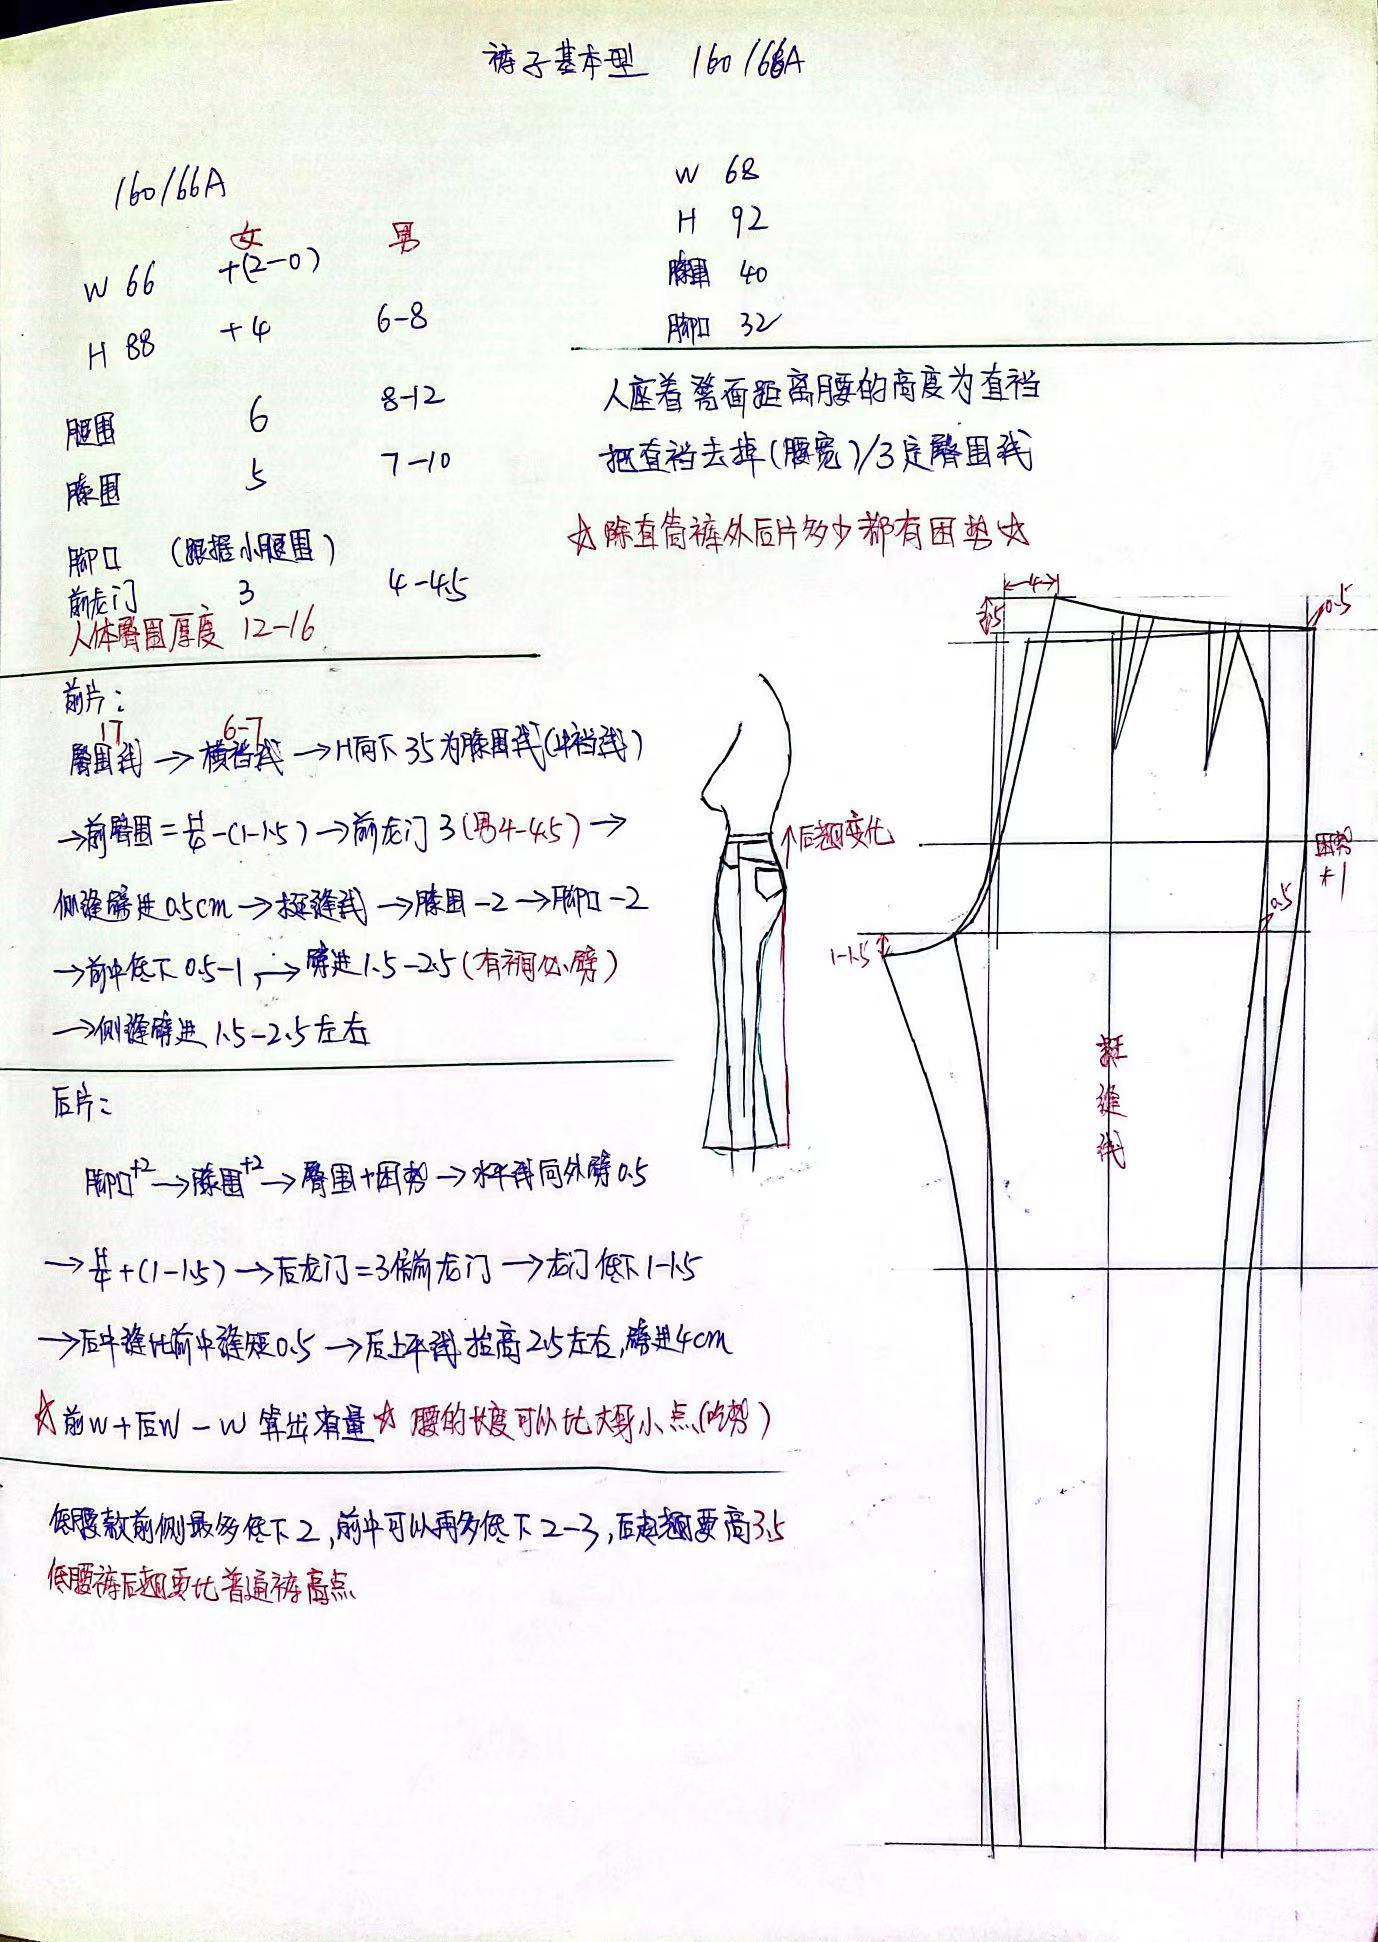 裤子基本型 160/68A
160/66A
女 男
W 66 +(2-0)
H 88 +4 6-8
腿围 6 8-12
膝围 5 7-10
脚口 (跟据小腿围)
前龙门 3 4-4.5
人体臀围厚度 12-16
W 68
H 92
膝围 40
脚口 32
人座着凳面距离腰的高度为直裆
把直裆去掉(腰宽)/3定臀围线
☆除直筒裤外后片多少都有困势☆
前片:
17 6-7
臀围线→横裆线→H向下35为膝围线(中裆线)
→前臀围=H/4-(1-1.5)→前龙门3(男4-4.5)→
侧缝劈进0.5cm→挺缝线→膝围-2→脚口-2
→前中低下0.5-1,→劈进1.5-2.5(有褶少劈)
→侧缝劈进1.5-2.5左右
后片:
脚口+2→膝围+2→臀围+困势→水平线向外劈0.5
→H/4+(1-1.5)→后龙门=3倍前龙门→龙门低下1-1.5
→后中缝比前中缝短0.5→后上平线抬高2.5左右,劈进4cm
☆前W+后W-W算出省量☆腰的长度可以比大身小点(吃势)
低腰款前侧最多低下2,前中可以再多低下2-3,后翘要高3.5
低腰裤后翘要比普通裤高点
↑后翘变化
4
0.5
困势
+1
0.5
1-1.5
挺
缝
线